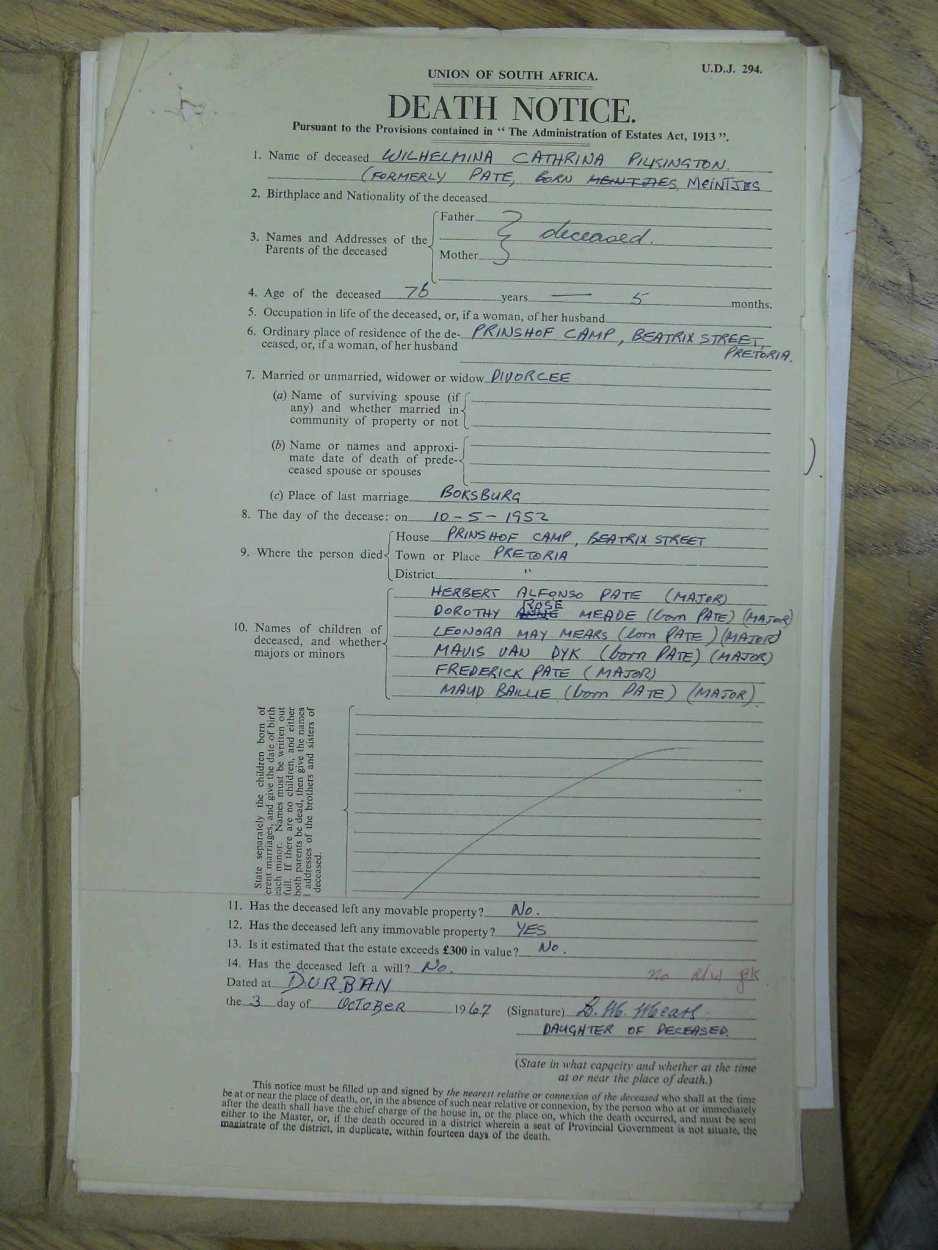 U.D.J. 294.
UNION OF SOUTH AFRICA.
DEATH NOTICE.
Pursuant to the Provisions contained in "The Administration of Estates Act, 1913".
1. Name of deceased WILHELMINA CATHRINA PILKINGTON.
(FORMERLY PATE, BORN MEINTJAES MEINTJES
2. Birthplace and Nationality of the deceased
3. Names and Addresses of the Parents of the deceased
Father
deceased.
Mother
4. Age of the deceased 76 years — 5 months.
5. Occupation in life of the deceased, or, if a woman, of her husband
6. Ordinary place of residence of the de- PRINSHOF CAMP, BEATRIX STREET,
ceased, or, if a woman, of her husband PRETORIA.
7. Married or unmarried, widower or widow DIVORCEE
(a) Name of surviving spouse (if
any) and whether married in
community of property or not
(b) Name or names and approxi-
mate date of death of prede-
ceased spouse or spouses
(c) Place of last marriage BOKSBURG
8. The day of the decease: on 10-5-1952
9. Where the person died
House PRINSHOF CAMP, BEATRIX STREET
Town or Place PRETORIA
District "
10. Names of children of
deceased, and whether
majors or minors
HERBERT ALFONSO PATE (MAJOR)
DOROTHY ANNE ROSE MEADE (born PATE) (MAJOR)
LEONORA MAY MEARS (born PATE) (MAJOR)
MAVIS VAN DYK (born PATE) (MAJOR)
FREDERICK PATE (MAJOR)
MAUD BAILLIE (born PATE) (MAJOR)
State separately the children born of
erent marriages, and give the date of birth
each minor. Names must be written out
full. If there are no children, and either
both parents be dead, then give the names
addresses of the brothers and sisters of
deceased.
11. Has the deceased left any movable property? No.
12. Has the deceased left any immovable property? YES
13. Is it estimated that the estate exceeds £300 in value? No.
14. Has the deceased left a will? No.
Dated at DURBAN
the 3 day of OCTOBER 1967 (Signature)
DAUGHTER OF DECEASED.
(State in what capacity and whether at the time
at or near the place of death.)
This notice must be filled up and signed by the nearest relative or connexion of the deceased who shall at the time
be at or near the place of death, or, in the absence of such near relative or connexion, by the person who at or immediately
after the death shall have the chief charge of the house in, or the place on, which the death occurred, and must be sent
either to the Master, or, if the death occured in a district wherein a seat of Provincial Government is not situate, the
magistrate of the district, in duplicate, within fourteen days of the death.